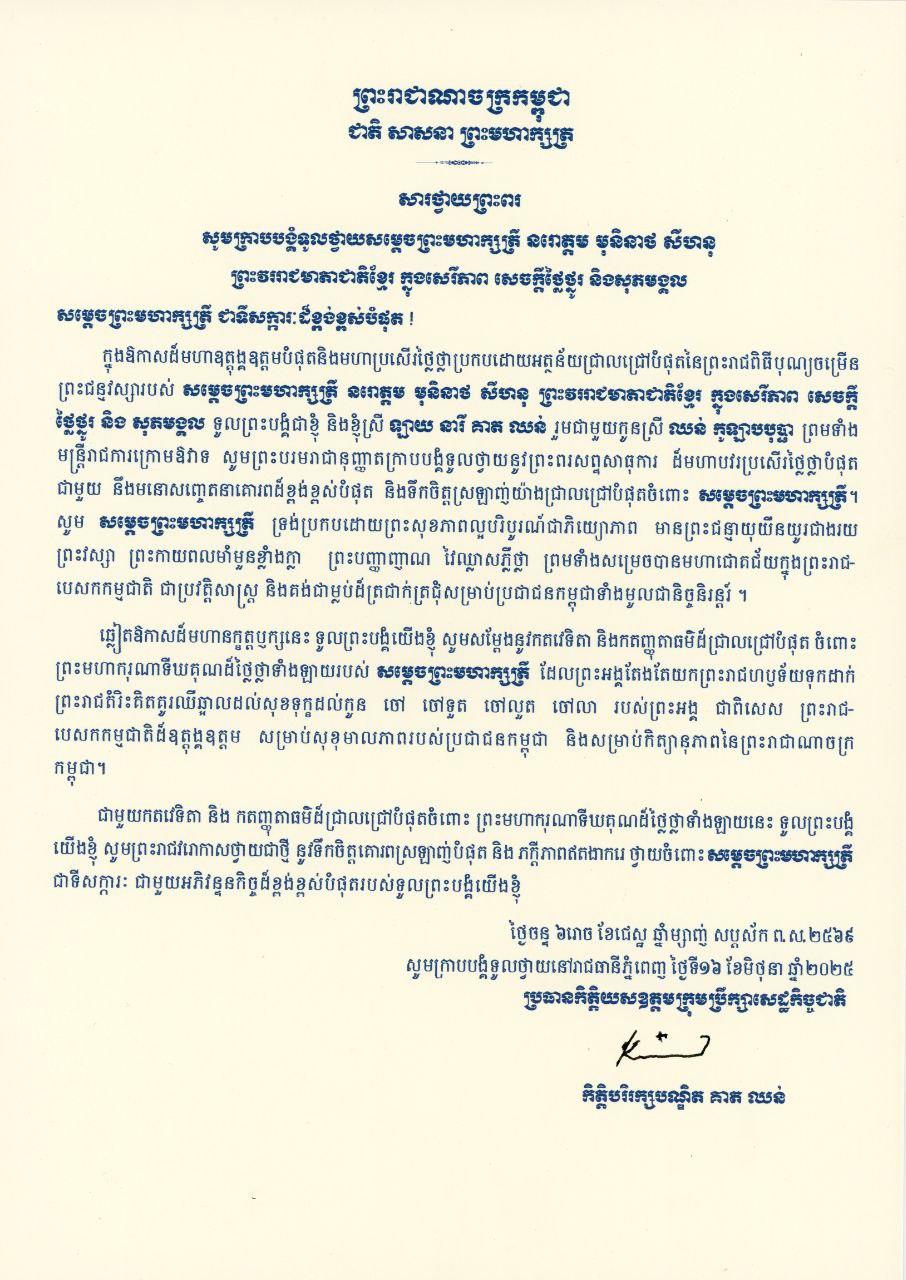 ព្រះរាជាណាចក្រកម្ពុជា
ជាតិ សាសនា ព្រះមហាក្សត្រ
សារថ្វាយព្រះពរ
សូមក្រាបបង្គំទូលថ្វាយសម្តេចព្រះមហាក្សត្រី នរោត្តម មុនិនាថ សីហនុ
ព្រះវររាជមាតាជាតិខ្មែរ ក្នុងសេរីភាព សេចក្តីថ្លៃថ្នូរ និងសុភមង្គល
សម្តេចព្រះមហាក្សត្រី ជាទីសក្ការៈដ៏ខ្ពង់ខ្ពស់បំផុត !
ក្នុងឱកាសដ៏មហាឧត្តុង្គឧត្តមបំផុតនិងមហាប្រសើរថ្លៃថ្លាប្រកបដោយអត្ថន័យជ្រាលជ្រៅបំផុតនៃព្រះរាជពិធីបុណ្យចម្រើន
ព្រះជន្មវស្សារបស់ សម្តេចព្រះមហាក្សត្រី នរោត្តម មុនិនាថ សីហនុ ព្រះវររាជមាតាជាតិខ្មែរ ក្នុងសេរីភាព សេចក្តី
ថ្លៃថ្នូរ និង សុភមង្គល ទូលព្រះបង្គំជាខ្ញុំ និងខ្ញុំស្រី ឡាយ នារី គាត ឈន់ រួមជាមួយកូនស្រី ឈន់ កូឡាបបុប្ផា ព្រមទាំង
មន្ត្រីរាជការក្រោមឱវាទ សូមព្រះបរមរាជានុញ្ញាតក្រាបបង្គំទូលថ្វាយនូវព្រះពរសព្ទសាធុការ ដ៏មហាបវរប្រសើរថ្លៃថ្លាបំផុត
ជាមួយ នឹងមនោសញ្ចេតនាគោរពដ៏ខ្ពង់ខ្ពស់បំផុត និងទឹកចិត្តស្រឡាញ់យ៉ាងជ្រាលជ្រៅបំផុតចំពោះ សម្តេចព្រះមហាក្សត្រី។
សូម សម្តេចព្រះមហាក្សត្រី ទ្រង់ប្រកបដោយព្រះសុខភាពល្អបរិបូរណ៍ជាភិយ្យោភាព មានព្រះជន្មាយុយឺនយូរជាងរយ
ព្រះវស្សា ព្រះកាយពលមាំមួនខ្លាំងក្លា ព្រះបញ្ញាញាណ វៃឈ្លាសភ្លឺថ្លា ព្រមទាំងសម្រេចបានមហាជោគជ័យក្នុងព្រះរាជ-
បេសកកម្មជាតិ ជាប្រវត្តិសាស្ត្រ និងគង់ជាម្លប់ដ៏ត្រជាក់ត្រជុំសម្រាប់ប្រជាជនកម្ពុជាទាំងមូលជានិច្ចនិរន្តរ៍ ។
ឆ្លៀតឱកាសដ៏មហានក្ខត្តឫក្សនេះ ទូលព្រះបង្គំយើងខ្ញុំ សូមសម្តែងនូវកតវេទិតា និងកតញ្ញុតាធម៌ដ៏ជ្រាលជ្រៅបំផុត ចំពោះ
ព្រះមហាករុណាទីឃគុណដ៏ថ្លៃថ្លាទាំងឡាយរបស់ សម្តេចព្រះមហាក្សត្រី ដែលព្រះអង្គតែងតែយកព្រះរាជហឫទ័យទុកដាក់
ព្រះរាជតំរិះគិតគូរឈឺឆ្អាលដល់សុខទុក្ខដល់កូន ចៅ ចៅទួត ចៅលួត ចៅលា របស់ព្រះអង្គ ជាពិសេស ព្រះរាជ-
បេសកកម្មជាតិដ៏ឧត្តុង្គឧត្តម សម្រាប់សុខុមាលភាពរបស់ប្រជាជនកម្ពុជា និងសម្រាប់កិត្យានុភាពនៃព្រះរាជាណាចក្រ
កម្ពុជា។
ជាមួយកតវេទិតា និង កតញ្ញុតាធម៌ដ៏ជ្រាលជ្រៅបំផុតចំពោះ ព្រះមហាករុណាទីឃគុណដ៏ថ្លៃថ្លាទាំងឡាយនេះ ទូលព្រះបង្គំ
យើងខ្ញុំ សូមព្រះរាជវរោកាសថ្វាយជាថ្មី នូវទឹកចិត្តគោរពស្រឡាញ់បំផុត និង ភក្តីភាពឥតងាករេ ថ្វាយចំពោះសម្តេចព្រះមហាក្សត្រី
ជាទីសក្ការៈ ជាមួយអភិវន្ទនកិច្ចដ៏ខ្ពង់ខ្ពស់បំផុតរបស់ទូលព្រះបង្គំយើងខ្ញុំ
ថ្ងៃចន្ទ ៦រោច ខែជេស្ឋ ឆ្នាំម្សាញ់ សប្តស័ក ព.ស.២៥៦៩
សូមក្រាបបង្គំទូលថ្វាយនៅរាជធានីភ្នំពេញ ថ្ងៃទី១៦ ខែមិថុនា ឆ្នាំ២០២៥
ប្រធានកិត្តិយសឧត្តមក្រុមប្រឹក្សាសេដ្ឋកិច្ចជាតិ
កិត្តិបរិរក្សបណ្ឌិត គាត ឈន់